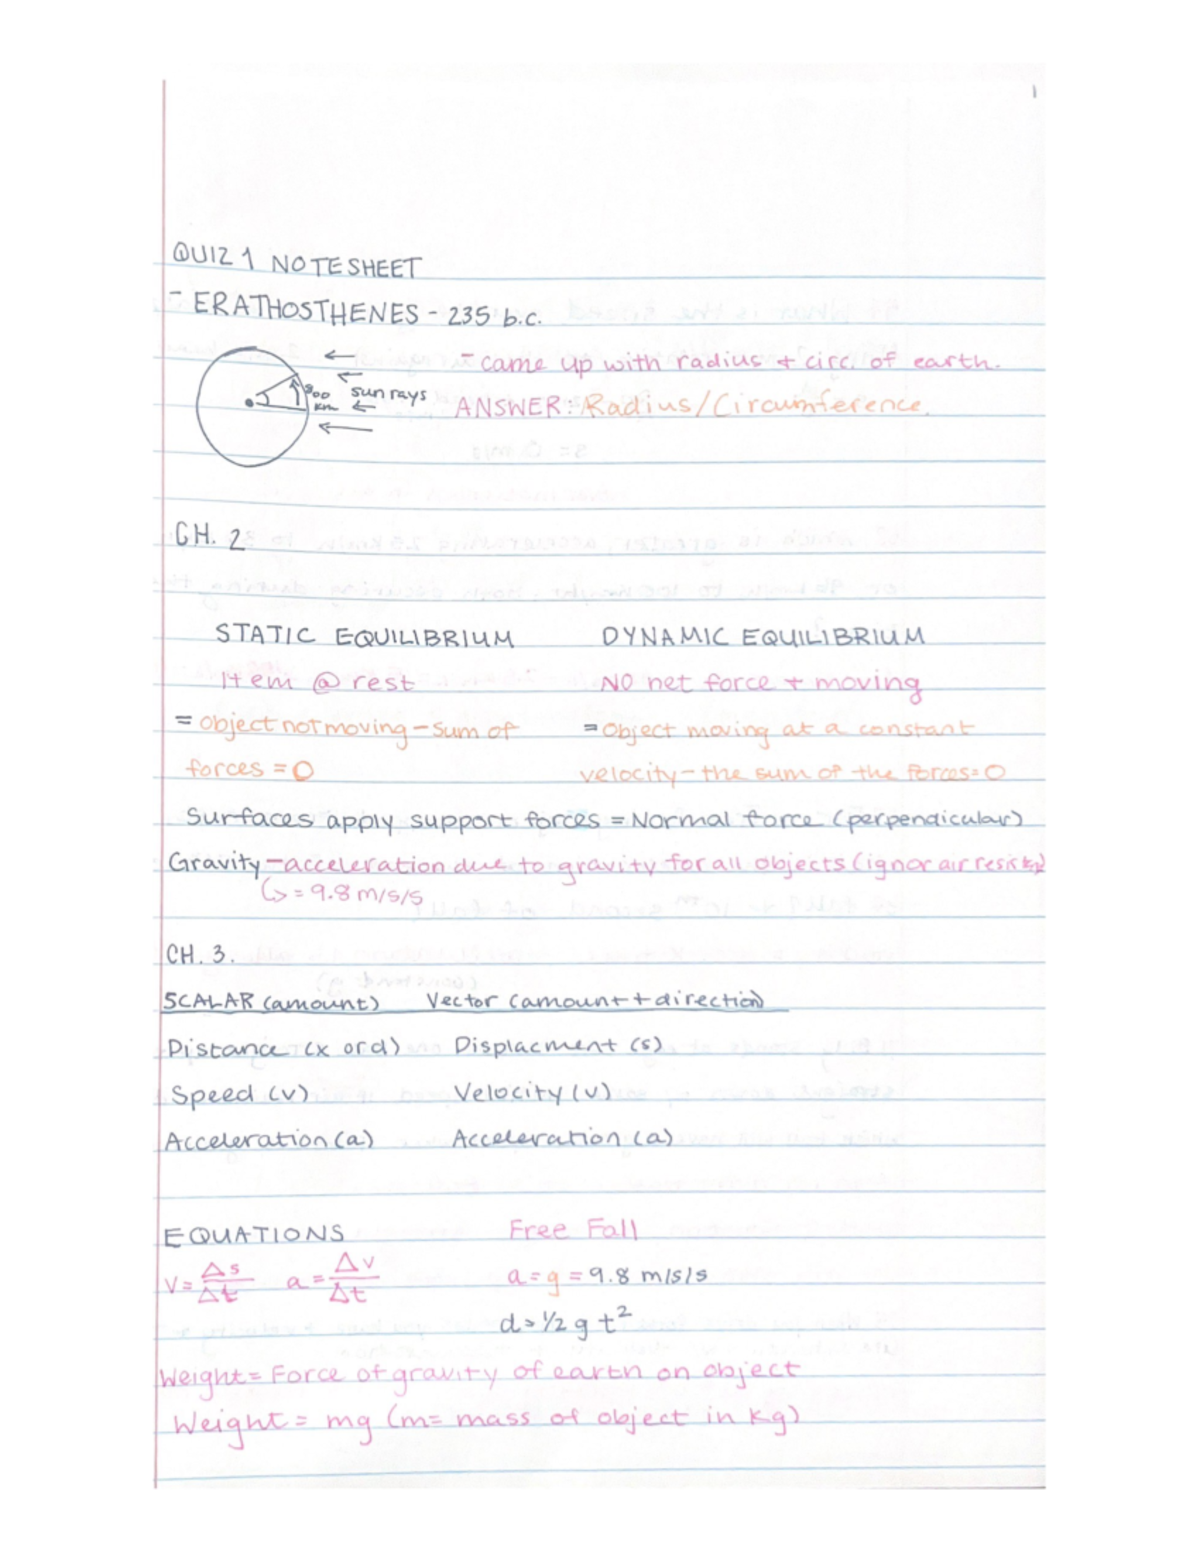 1
QUIZ 1 NOTESHEET
- ERATHOSTHENES - 235 b.c.
- came up with radius + circ. of earth.
800 km sun rays
ANSWER: Radius/Circumference.
CH. 2
STATIC EQUILIBRIUM DYNAMIC EQUILIBRIUM
Item @ rest NO net force + moving
= object not moving - sum of = Object moving at a constant
forces = 0 velocity - the sum of the forces = 0
Surfaces apply support forces = Normal force (perpendicular)
Gravity - acceleration due to gravity for all objects (ignor air
↳ = 9.8 m/s/s
CH. 3.
SCALAR (amount) Vector (amount + direction)
Distance (x or d) Displacment (s)
Speed (v) Velocity (v)
Acceleration (a) Acceleration (a)
EQUATIONS Free Fall
v = Δs/Δt a = Δv/Δt a = g = 9.8 m/s/s
d = 1/2 g t²
Weight = Force of gravity of earth on object
Weight = mg (m = mass of object in kg)